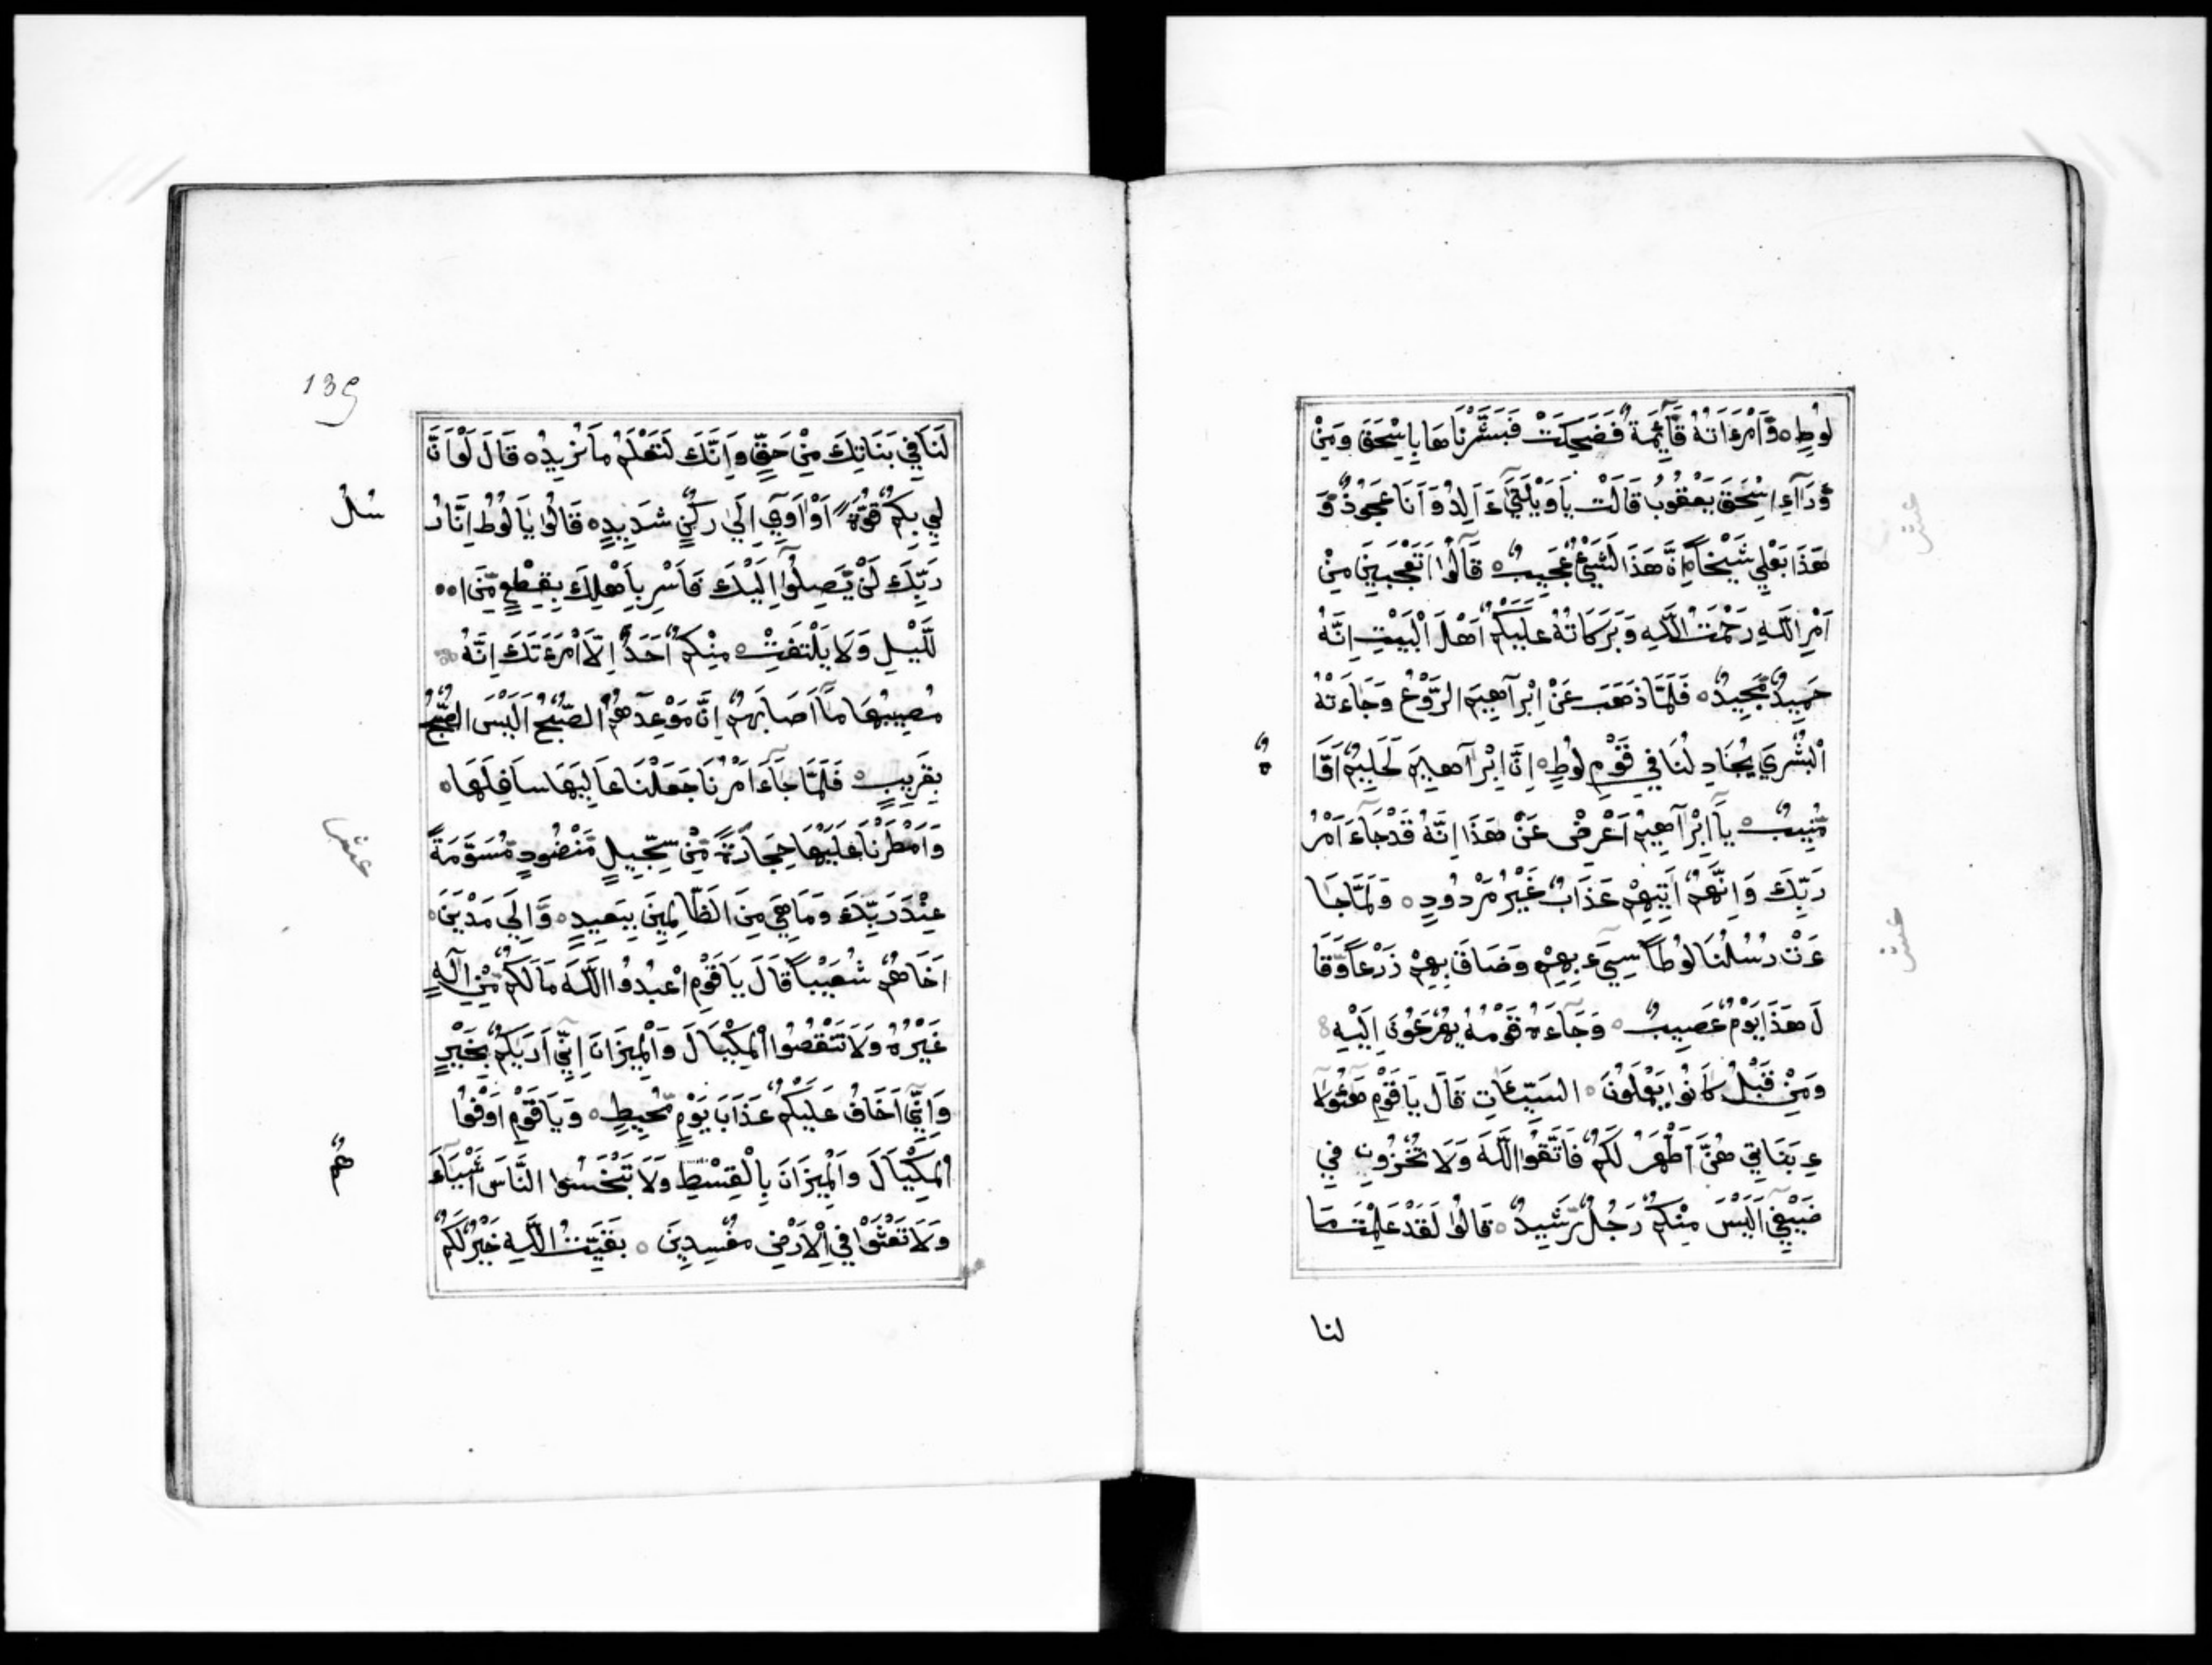 لُوطٍ ه وَّامْرَءَاتُهُ قَآئِمَةٌ فَضَحِكَتْ فَبَشَّرْنَاهَا بِاِسْحَقَ وَمِنْ
وَّرَآءِ اِسْحَقَ يَعْقُوبُ قَالَتْ يَاوَيْلَتَىٰٓ ءَاَلِدُ وَاَنَا عَجُوزٌ وَّ
هَذَا بَعْلِي شَيْخًا اِنَّ هَذَا لَشَيْئٌ عَجِيبٌ ه قَالُٓوا اَتَعْجَبِينَ مِنْ
اَمْرِ اللَّهِ رَحْمَتُ اللَّهِ وَبَرَكَاتُهُ عَلَيْكُمْ اَهْلَ الْبَيْتِ اِنَّهُ
حَمِيدٌ مَّجِيدٌ ه فَلَمَّا ذَهَبَ عَنْ اِبْرَآهِيمَ الرَّوْعُ وَجَاءَتْهُ
الْبُشْرَي يُجَادِلُنَا فِي قَوْمِ لُوطٍ ه اِنَّ اِبْرَآهِيمَ لَحَلِيمٌ اَوَّا
مُّنِيبٌ ه يَآ اِبْرَآهِيمُ اَعْرِضْ عَنْ هَذَا اِنَّهُ قَدْ جَآءَ اَمْرُ
رَبِّكَ وَاِنَّهُمْ اَتِيهِمْ عَذَابٌ غَيْرُ مَرْدُودٍ ه وَلَمَّا جَا
ءَتْ رُسُلُنَا لُوطًا سِيٓءَ بِهِمْ وَضَاقَ بِهِمْ ذَرْعًا وَّقَا
لَ هَذَا يَوْمٌ عَصِيبٌ ه وَجَآءَهُ قَوْمُهُ يُهْرَعُونَ اِلَيْهِ
وَمِنْ قَبْلُ كَانُوا يَعْلَوُنَ ه السَّيِّئَاتِ قَالَ يَا قَوْمِ هَٓئُولَآ
ءِ بَنَاتِي هُنَّ اَطْهَرُ لَكُمْ فَاتَّقُوا اللَّهَ وَلَا تُخْزُونِ فِي
ضَيْفِي اَلَيْسَ مِنْكُمْ رَجُلٌ رَّشِيدٌ ه قَالُوا لَقَدْ عَلِمْتَ مَا
لنا
ه
عشر
عشر
139
لَنَا فِي بَنَاتِكَ مِنْ حَقٍّ وَاِنَّكَ لَتَعْلَمُ مَا نُرِيدُ ه قَالَ لَوْ اَنَّ
لِي بِكُمْ قُوَّةً اَوْ اَوِٓي اِلَىٰ رُكْنٍ شَدِيدٍ ه قَالُوا يَا لُوطُ اِنَّا رُ
سُلُ
رَبِّكَ لَنْ يَّصِلُٓوا اِلَيْكَ فَاَسْرِ بِاَهْلِكَ بِقِطْعٍ مِّنَ ا ه ه
لَّيْلِ وَلَا يَلْتَفِتْ ه مِنْكُمْ اَحَدٌ اِلَّا امْرَءَتَكَ اِنَّهُ
مُصِيبُهَا مَآ اَصَابَهُمْ اِنَّ مَوْعِدَهُمُ الصُّبْحُ اَلَيْسَ الصُّبْحُ
بِقَرِيبٍ ه فَلَمَّا جَآءَ اَمْرُنَا جَعَلْنَا عَالِيَهَا سَافِلَهَا ه
وَاَمْطَرْنَا عَلَيْهَا حِجَارَةً مِّنْ سِجِّيلٍ مَّنْضُودٍ مُّسَوَّمَةً
عِنْدَ رَبِّكَ وَمَا هِيَ مِنَ الظَّالِمِينَ بِبَعِيدٍ ه وَاِلَى مَدْيَنَ ه
اَخَاهُمْ شُعَيْبًا قَالَ يَا قَوْمِ اعْبُدُوا اللَّهَ مَا لَكُمْ مِّنْ اِلَهٍ
غَيْرُهُ وَلَا تَنْقُصُوا الْمِكْيَالَ وَالْمِيزَانَ اِنِّيٓ اَرَيكُمْ بِخَيْرٍ
وَاِنِّيٓ اَخَافُ عَلَيْكُمْ عَذَابَ يَوْمٍ مُّحِيطٍ ه وَيَا قَوْمِ اَوْفُوا
الْمِكْيَالَ وَالْمِيزَانَ بِالْقِسْطِ وَلَا تَبْخَسُوا النَّاسَ اَشْيَآءَ
هُمْ
وَلَا تَعْثَوْا فِي الْاَرْضِ مُفْسِدِينَ ه بَقِيَّتُ اللَّهِ خَيْرٌ لَكُمْ